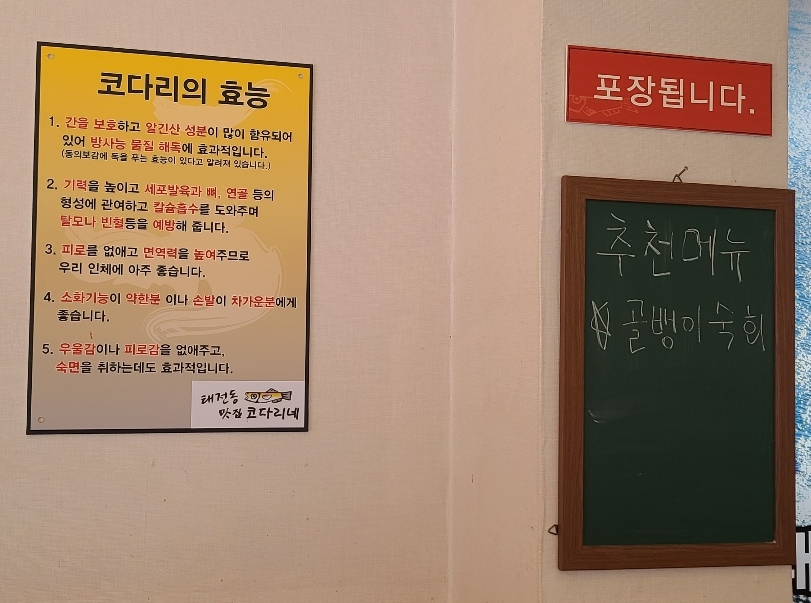 코다리의 효능
1. 간을 보호하고 알긴산 성분이 많이 함유되어
있어 방사능 물질 해독에 효과적입니다.
(동의보감에 독을 푸는 효능이 있다고 알려져 있습니다.)
2. 기력을 높이고 세포발육과 뼈, 연골 등의
형성에 관여하고 칼슘흡수를 도와주며
탈모나 빈혈등을 예방해 줍니다.
3. 피로를 없애고 면역력을 높여주므로
우리 인체에 아주 좋습니다.
4. 소화기능이 약한분 이나 손발이 차가운분에게
좋습니다.
5. 우울감이나 피로감을 없애주고,
숙면을 취하는데도 효과적입니다.
태전동
맛집 코다리네
포장됩니다.
추천메뉴
골뱅이숙회